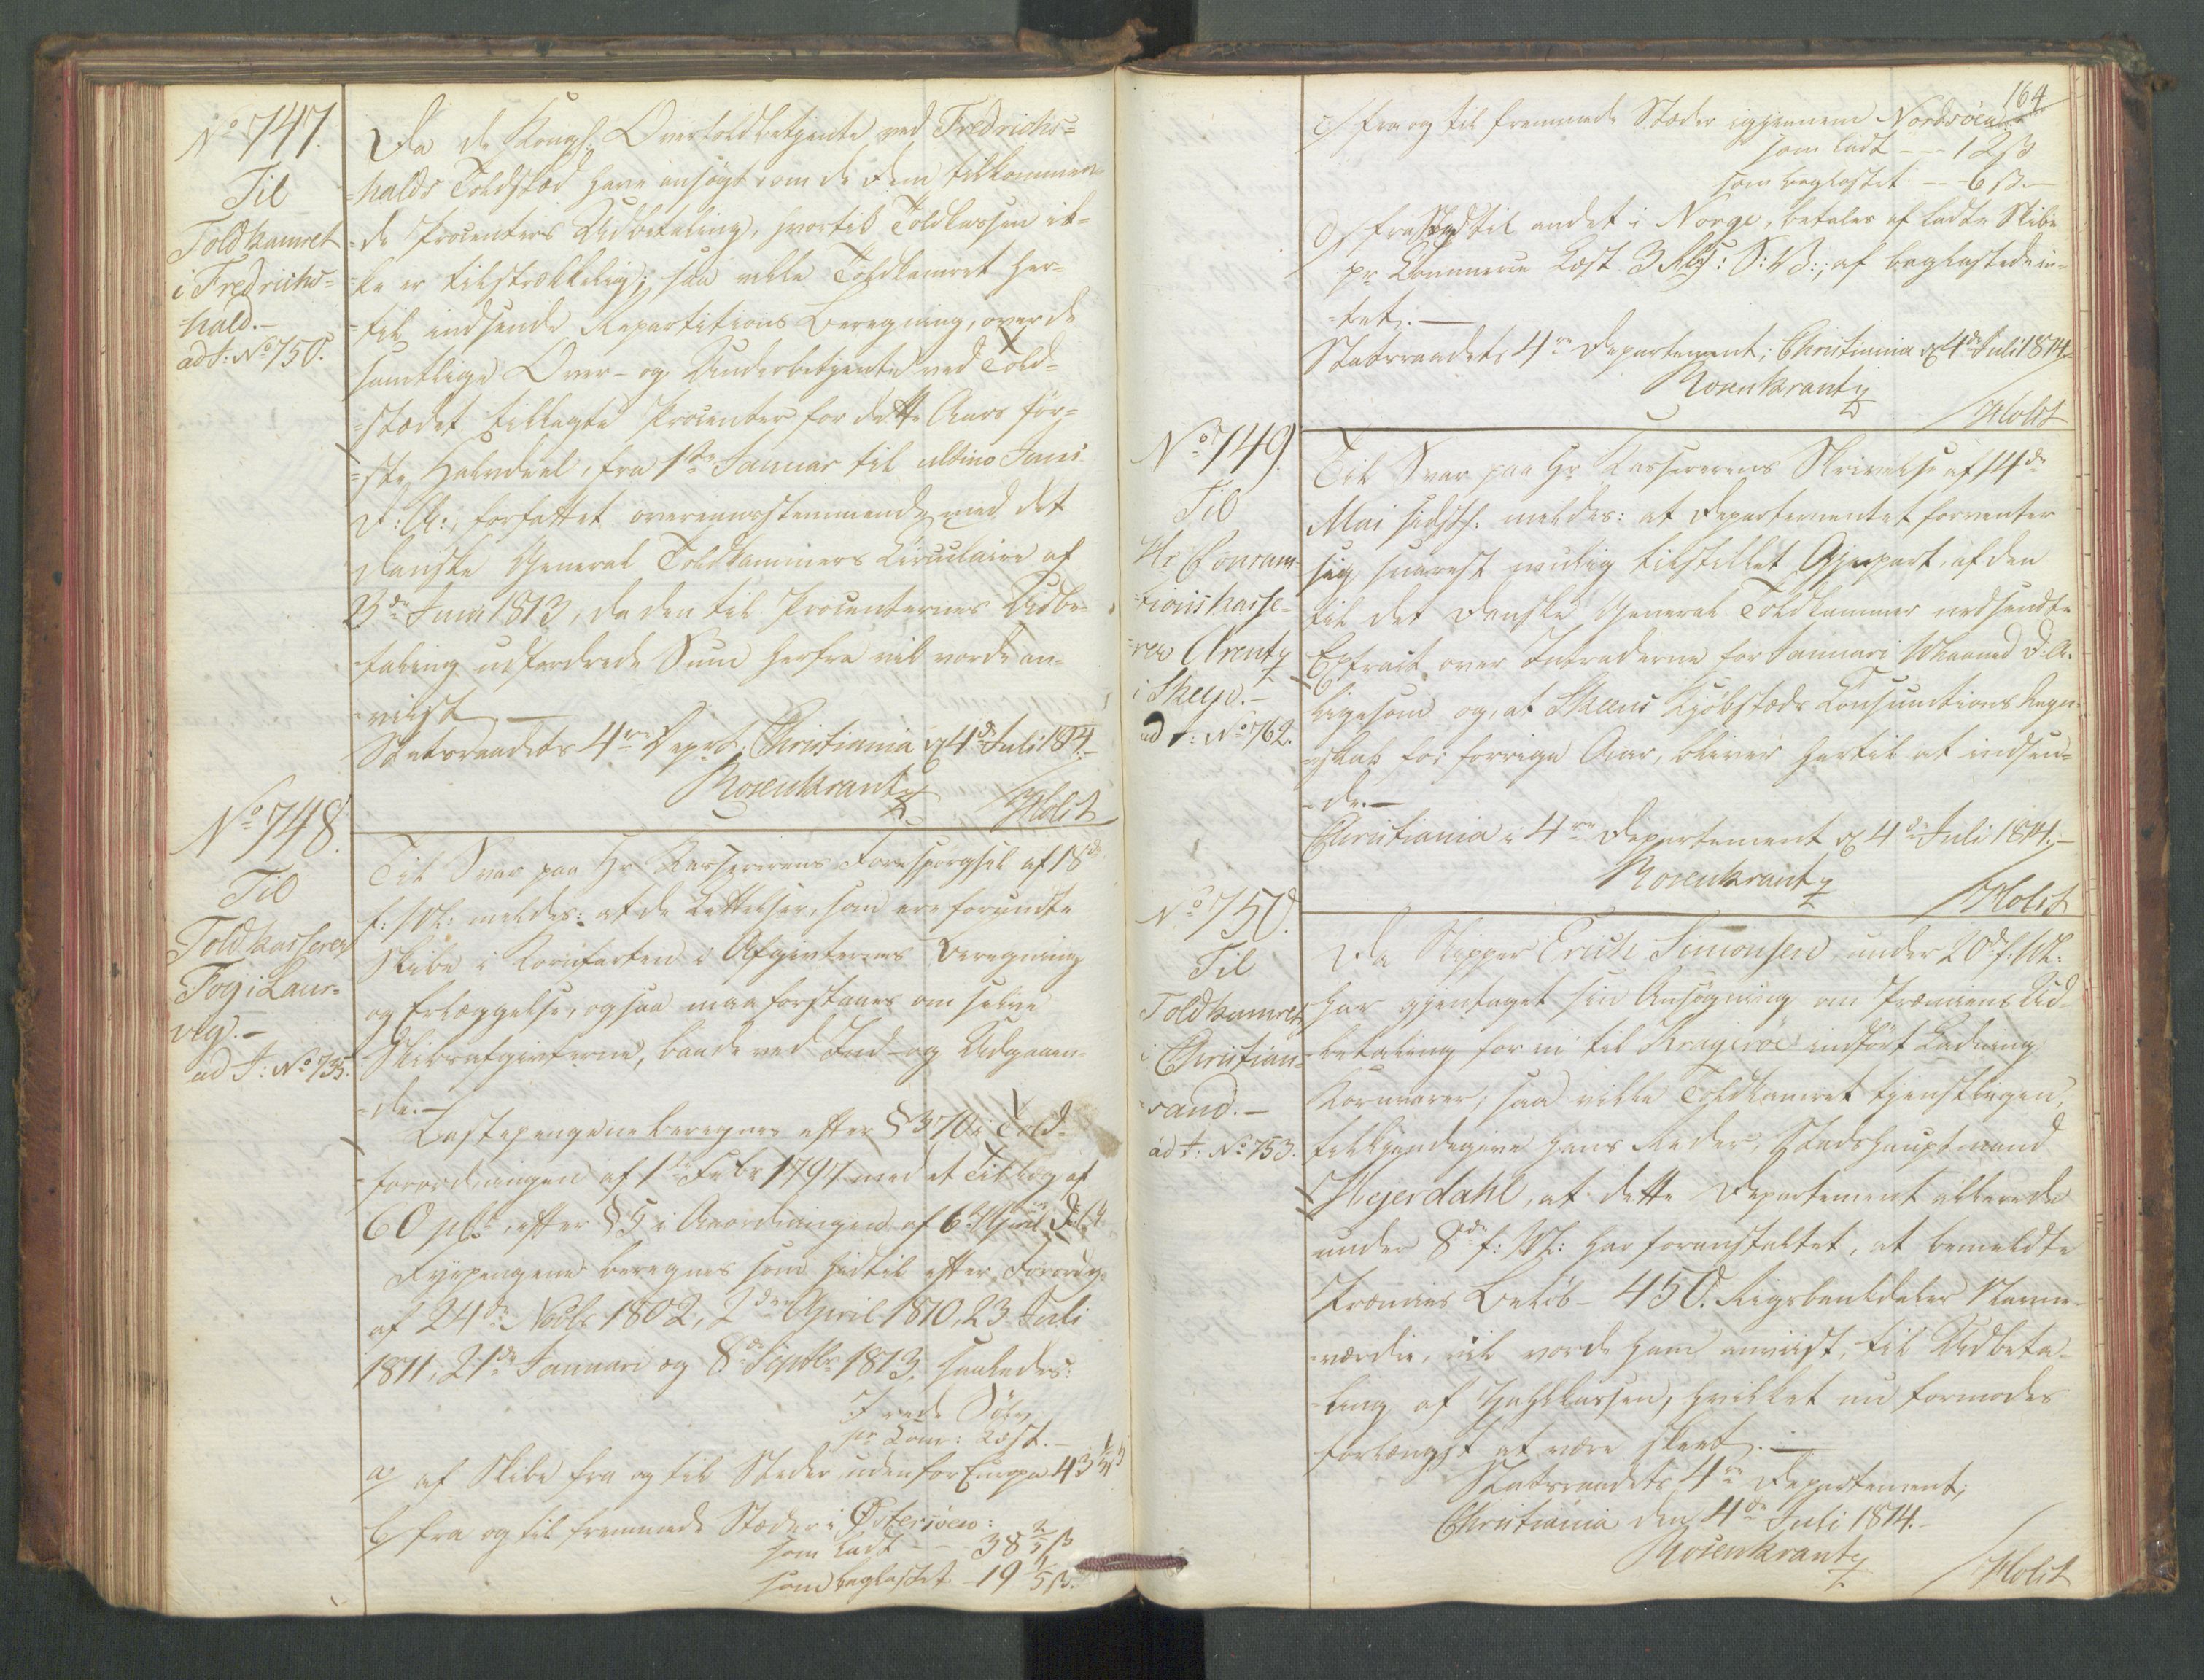 No 747.
Til
Toldkamret
i Fredrichs=
hald.-
ad J: No 750.
Da de Kongl: Overtoldbetjente ved Fredrichs=
=halds Toldsted have ansøgt om de dem tilkommen=
=de Procenters Udbetaling, hvortil Toldkassen ik=
=ke er tilstrækkelig; saa ville Toldkamret her=
=til indsende Repartitions Beregning, over de
samtlige Over- og Underbetjente ved Told=
=stedet tillagte Procenter for dette Aars før=
=ste Halvdeel, fra 1ste Januar til ultimo Juni
d: A:, forfattet overeensstemmende med det
danske General Toldkammers Circulaire af
3de Juni 1813, da den til Procenternes Udbe=
taling udfordrede Sum herfra vil vorde an=
=viist.-
Statsraadets 4re Dept. Christiania d 4de Juli 1814.-
Rosenkrantz
/Holst
No 748.
Til
Toldkasserer
Foy i Laur=
vig.-
ad J: No 735.
Til Svar paa Hr Kassererens Forespørgsel af 18de
f: M: meldes: at de Lettelser, som ere forundte
Skibe i Kornfarten i Afgivternes Beregning
og Erlæggelse, ogsaa maa forstaaes om selve
Skibsafgivterne, baade ved Ind- og Udgaaen=
=de.-
Lastepengene beregnes efter § 370 i Told=
forordningen af 1ste Febr 1797 med et Tillæg af
60 pCt. efter § 5 i Anordningen af 6te April d: A:
Fyrpengene beregnes som hidtil efter Forordg:
af 24de Novbr 1802, 2den April 1810, 23 Juli
1811, 21de Januari og 8de Septbr 1813, saaledes:
I rede Sølv
pr Com: Læst.-
a, af Skibe fra og til Steder udenfor Europa 43 1/5 ß
b, fra og til fremmede Stæder i Østersøen:
som ladt - - 38 2/5 ß
som baglastet - 19 1/5 ß.
164
c, fra og til fremmede Stæder igjennem Nordsøen
som ladt - - - 12 ß
som baglastet - - 6 ß.-
d, fra Sted til andet i Norge, betales af ladte Skibe
pr Commerce Læst 3 Rb: S: V ß:, af baglastede in=
=tet.-
Statsraadets 4re Departement; Christiania d 4de Juli 1814.-
Rosenkrantz
/Holst
No 749.
Til
Hr Consum=
tionskasse=
rer Arentz
i Skeen.-
ad J: No 762.
Til Svar paa Hr Kassererens Skrivelse af 14de
Mai sidstl. meldes: at Departementet forventer
sig snarest muelig tilstillet Gjenpart, af den
til det danske General Toldkammer nedsendte
Extract over Intraderne for Januari Maaned d. A.
ligesom og, at Skeens Kjøbstæds Consumtions Regn=
=skab for forrige Aar, bliver hertil at indsen=
=de.-
Christiania i 4re Departement d 4de Juli 1814.-
Rosenkrantz
/Holst
No 750.
Til
Toldkamret
i Christian=
=sand.-
ad J: No 753.
Da Skipper Erich Simonsen under 20de f: M:
har gjentaget sin Ansøgning om Præmiens Ud=
=betaling for en til Kragerøe indført Ladning
Kornvarer; saa ville Toldkamret tjenstligen,
tilkjendegive hans Reder, Stadshauptmand
Hejerdahl, at dette Departement allerede
under 8de f: M: har foranstaltet, at bemeldte
Præmies Beløb - 450. Rigsbankdaler Navne=
=værdie, vil vorde ham anviist, til Udbeta=
=ling af Zahlkassen, hvilket nu formodes
forlængst at være skeet.-
Statsraadets 4re Departement;
Christiania den 4de Juli 1814.-
Rosenkrantz
/Holst